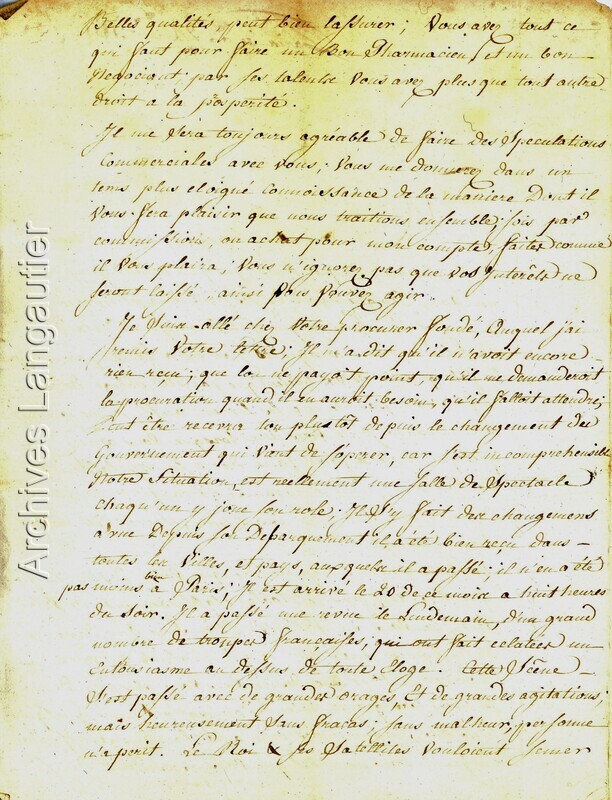 Belles qualités, peut bien l'assurer; Vous avez tout ce
qui faut pour faire un Bon Pharmacien, et un bon
Negociant par ses talents Vous avez plus que tout autre
droit a la prosperité.
Il me sera toujours agréable de faire des Speculations
Commerciales avec vous; Vous me donnerez dans un
tems plus eloigné connoissance de la maniere Dont il
Vous fera plaisir que nous traitions ensemble; sois par
commission, ou achat pour mon compte, faites comme
il Vous plaira; Vous n'ignorez pas que vos Interêts ne
seront laissé ainsi Vous pouvez agir.
Je suis allé chez Votre procureur fondé, Auquel j'ai
remis Votre lettre; Il m'a dit qu'il n'avoit encore
rien reçu; que l'on ne payoit point, qu'il me demanderoit
la procuration quand il en auroit besoin, qu'il falloit attendre;
Peut être recevra t'on plustôt depuis le changement de
Gouvernement qui Vient de s'operer, car s'est incomprehensible
Notre Situation, est reellement une Salle de Spectacle
chaqu'un y joue son role; Il s'y fait des changemens
a vue Depuis son Debarquement il a été bien reçu dans
toutes les Villes, et pays, auxquels il a passé; il n'en a été
pas moins bien à Paris; Il est arrivé le 20 de ce mois a huit heures
du soir. Il a passé une revue le Lendemain, d'un grand
nombre de troupes françaises, qui ont fait eclatées un
Entousiasme au dessus de toute Eloge. Cette Scêne
s'est passé avec de grandes orages Et de grandes agitations,
mais heureusement sans fracas; sans malheur, personne
n'a perit. Le Roi & ses Satellites Vouloient semer
Archives Langautier